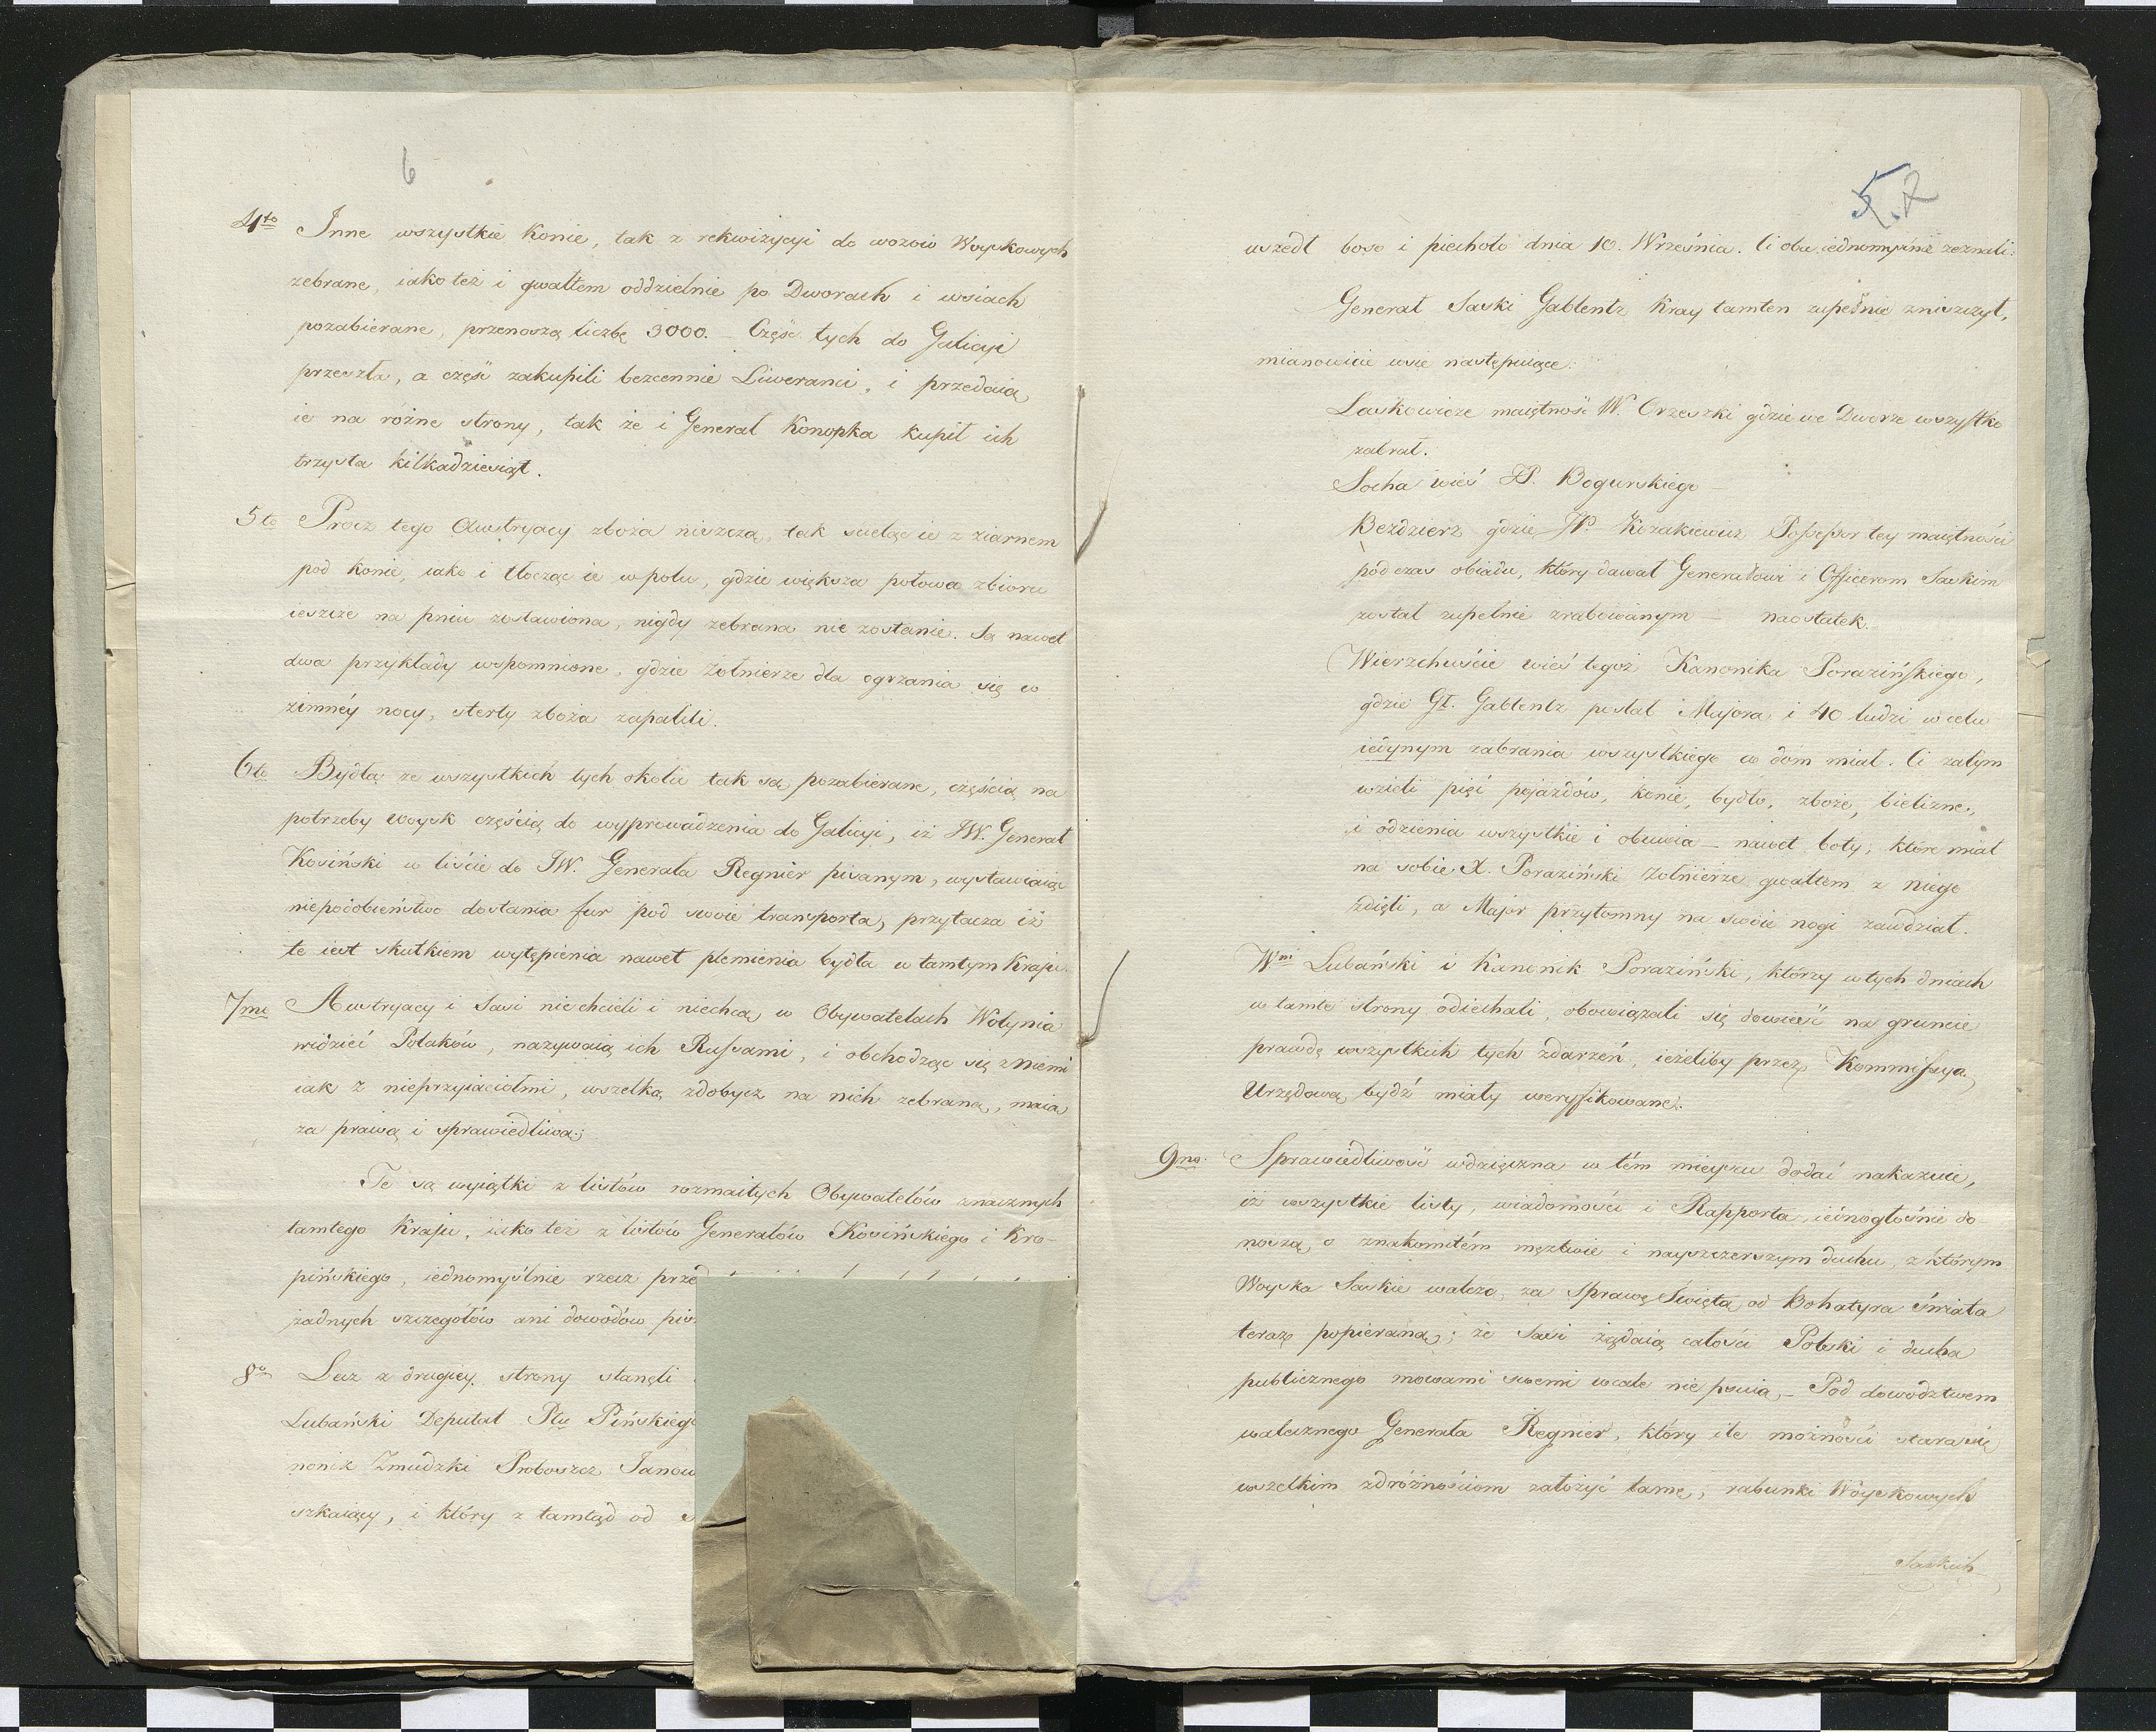 6
4to Inne wszystkie Konie, tak z rekwizycyi do wozów Woyskowych
zebrane, iako też i gwałtem oddzielnie po Dworach i wsiach
pozabierane, przenoszą liczbę 3000. – Część tych do Galicyi
przeszła, a część zakupili bezcennie Liweranci, i przedaią
ie na różne strony, tak że i Generał Konopka kupił ich
trzysta kilkadziesiąt.
5to Prócz tego Austryacy zboża niszczą, tak scieląc ie z ziarnem
pod konie, iako i tłocząc ie w polu, gdzie większa połowa zbioru
ieszcze na pniu zostawiona, nigdy zebrana nie zostanie. Są nawet
dwa przykłady wspomnione, gdzie żołnierze dla ogrzania się w
zimnéy nocy, sterty zboża zapalili.
6to Bydła ze wszystkich tych okolic tak są pozabierane, częścią na
potrzeby woysk częścią do wyprowadzenia do Galicyi, iż JW. Generał
Kosiński w liście do JW. Generała Regnier pisanym, wystawiaiąc
niepodobieństwo dostania fur pod swoie transporta, przytacza iż
te iest skutkiem wytępienia nawet plemienia bydła w tamtym Kraju.
7mo Austryacy i Sasi niechcieli i niechcą w Obywatelach Wołynia
widzieć Polaków, nazywaią ich Russami, i obchodząc się z niemi
iak z nieprzyiaciołmi, wszelką zdobycz na nich zebraną, maią
za prawą i sprawiedliwą.
Te są wyiątki z listów rozmaitych Obywatelów znacznych
tamtego Kraju, iako też z listów Generałów Kosińskiégo i Kro-
pińskiego, iednomyślnie rzecz
żadnych szczegółów ani dowodów
8vo Lecz z drugiey strony stanęli
Lubański Deputat Ptu Pińskiego
nonik Zmudzki Proboszcz
szkaiący, i który z tamtąd od
5. 2
uszedł boso i piechoto dnia 10. Września. Ci oba iednomyślnie zeznali:
Generał Saski Gablentz Kray tamten zupełnie zniszczył,
mianowicie wsie następuiące:
Laskowicze maiętność W. Orzeszki gdzie we Dworze wszystko
zabrał.
Socha wieś JP. Bogurskiego –
Bezdzierz gdzie JP. Kozakiewicz Possessor tey maiętności
podczas obiadu, który dawał Generałowi i Officerom Saskim
został zupełnie zrabowanym – naostatek –
Wierzchuście wieś tegoż Kanonika Porazińskiego,
gdzie Gł. Gablentz posłał Majora i 40 ludzi w celu
iedynym zabrania wszystkiego co dóm miał. Ci zatym
wzieli pięć pojazdów, konie, bydło, zboże, bielizne,
i odzienia wszystkie i obuwia – nawet boty, które miał
na sobie X. Poraziński żołnierze gwałtem z niego
zdięli, a Major przytomny na swoie nogi zawdział.
Wni Lubański i Kanonik Poraziński, którzy w tych dniach
w tamte strony odiechali, obowiązali się dowieść na gruncie
prawdę wszystkich tych zdarzeń, ieżeliby przez Kommissyą
Urzędową bydź miały weryfikowane.
9no. Sprawiedliwość wdzięczna w tém mieyscu dodać nakazuie,
iż wszystkie listy, wiadomości i Rapporta, iednogłośnie do-
noszą o znakomitém męztwie i nayszczerszym duchu, z którym
Woyska Saskie walczą, za Sprawę Świętą od Bohatyra świata
teraz popieraną; że Sasi żądaią całości Polski i ducha
publicznego mowami swemi wcale nie psuią. – Pod dowodztwem
walecznego Generała Regnier, który ile możności stara się
wszelkim zdrożnościom założyć tamę, rabunki Woyskowych
Saskich